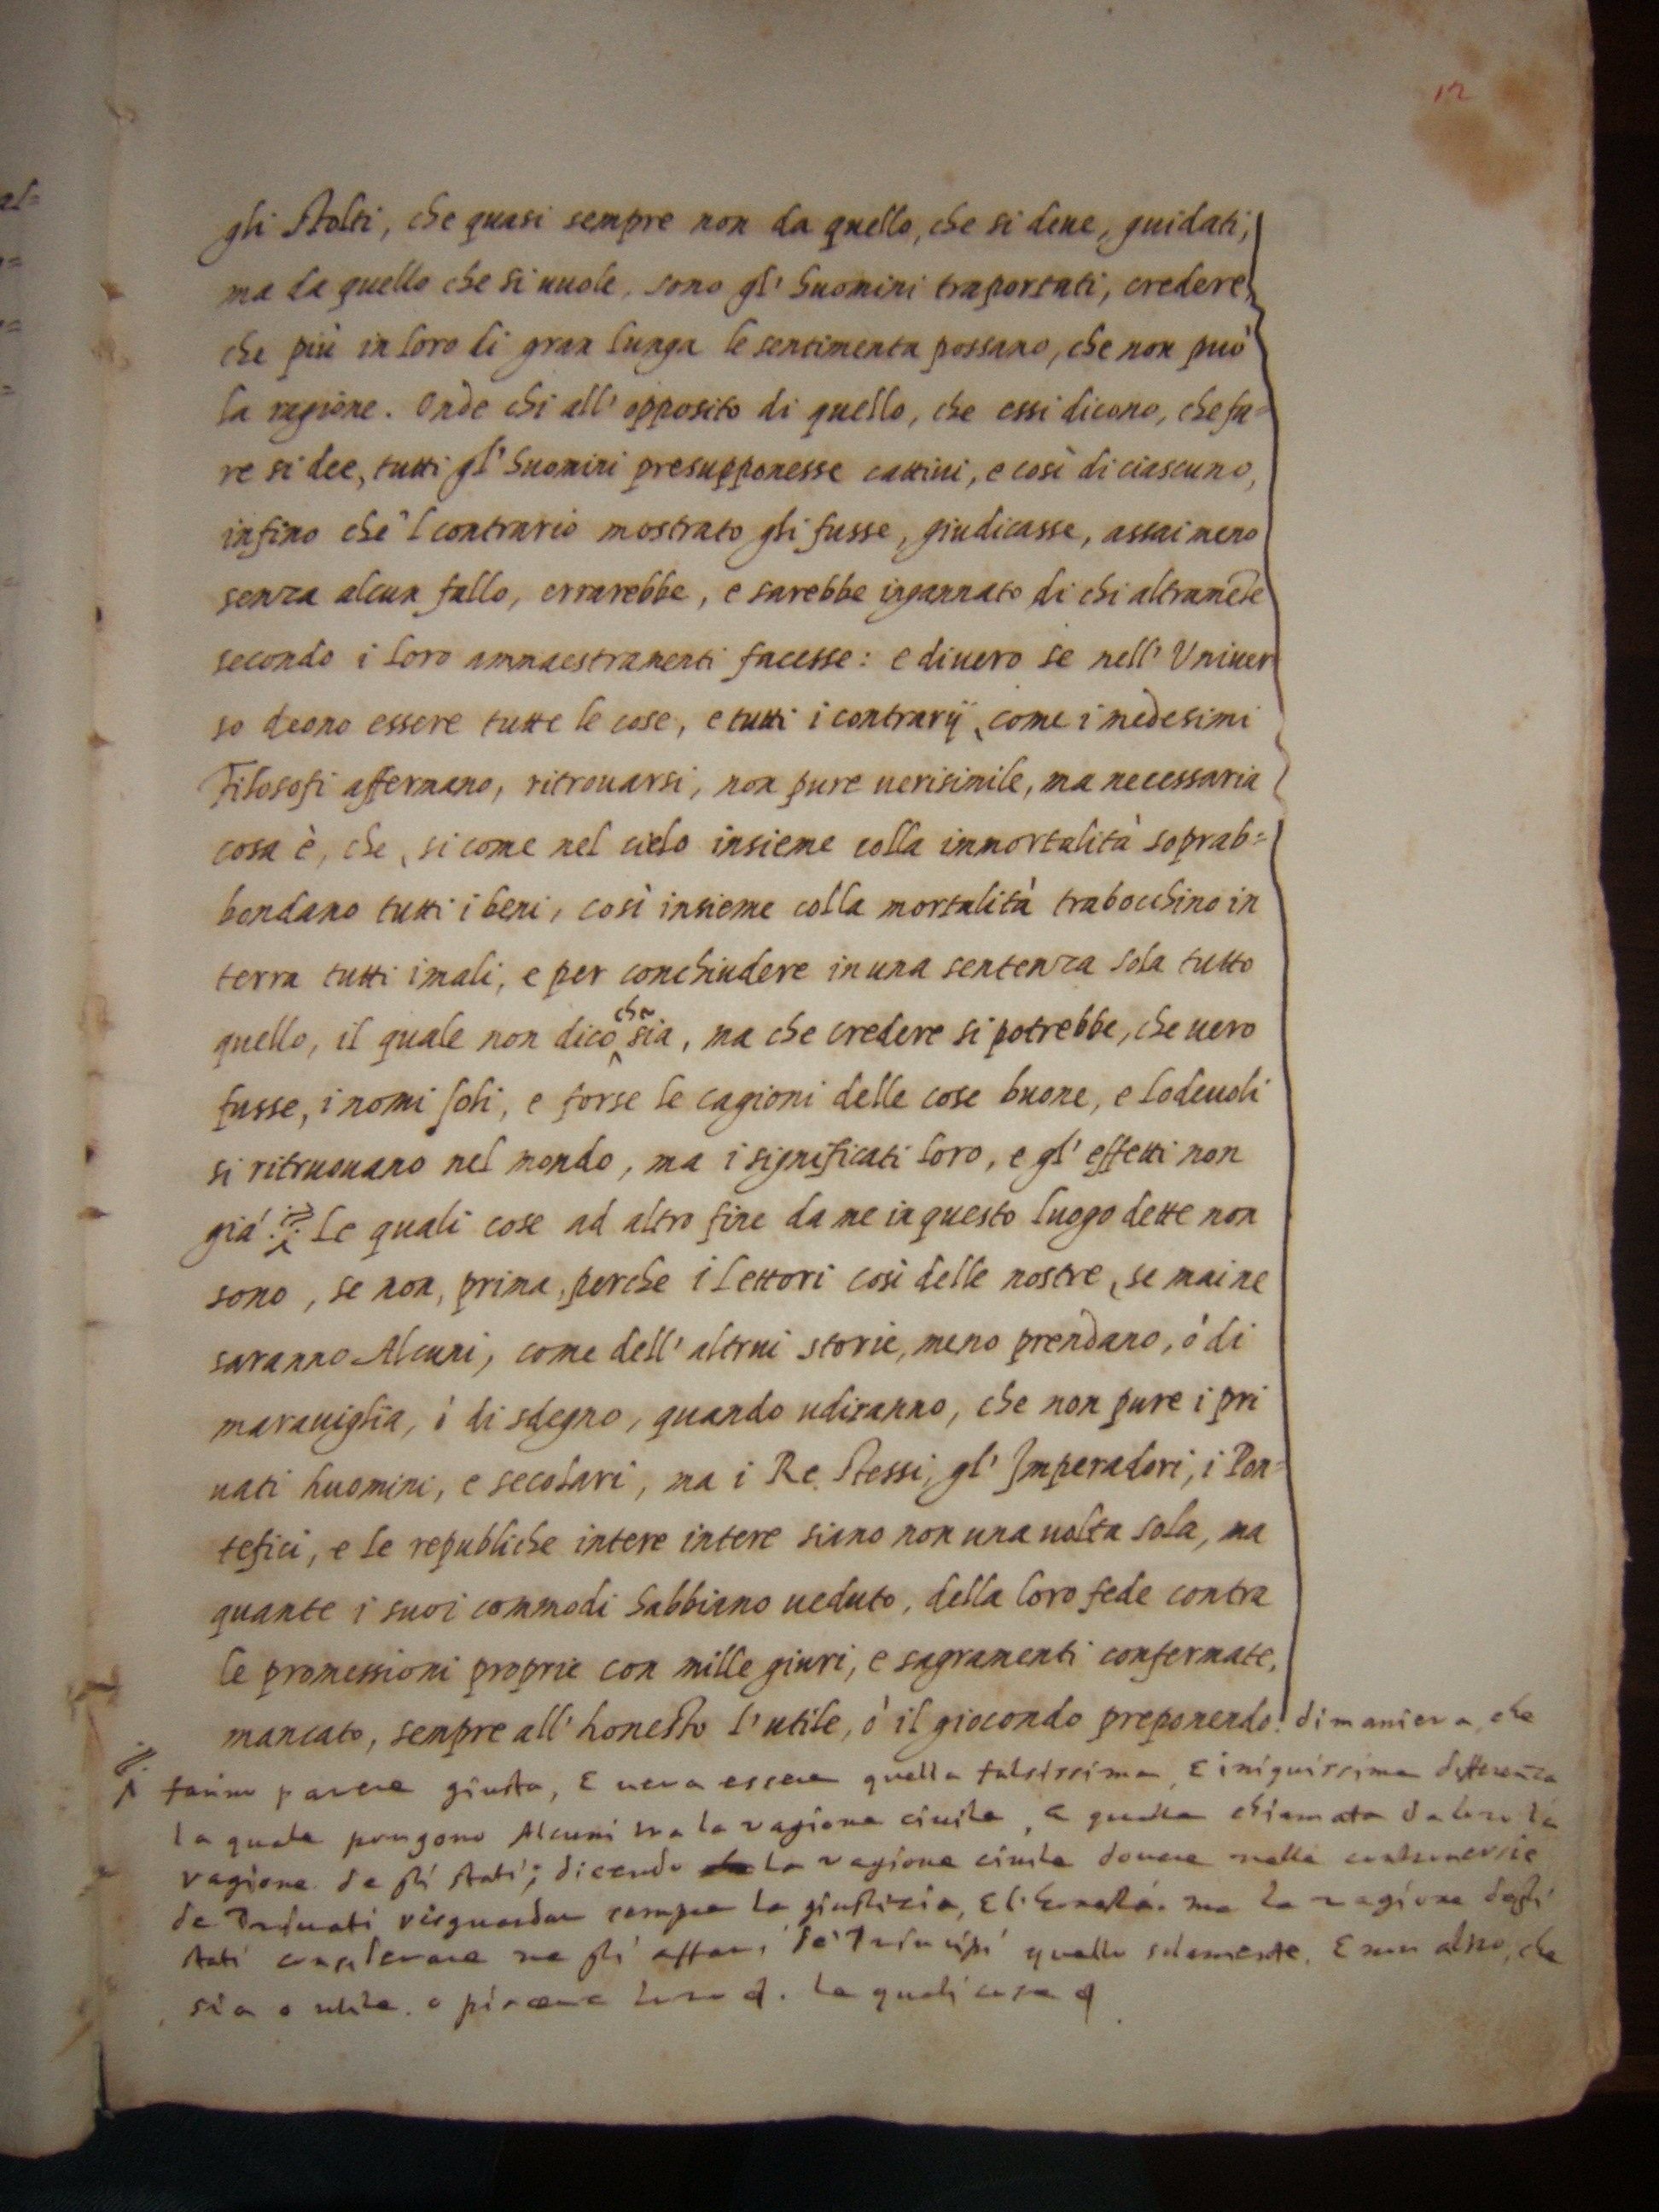 12
gli stolti, che quasi sempre non da quello, che si deue, guidati,
ma da quello che si uuole, sono gl' huomini traportati, credere,
che più in loro di gran lunga le sentimenta possano, che non può
la ragione. Onde chi all' opposito di quello, che essi dicono, che fa=
re si dee, tutti gl' huomini presupponesse cattiui, e così di ciascuno,
infino che 'l contrario mostrato gli fusse, giudicasse, assai meno
senza alcun fallo, errarebbe, e sarebbe ingannato di chi altramẽte
secondo i loro ammaestramenti facesse: e diuero se nell' Vniuer
so deono essere tutte le cose, e tutti i contrarij, come i medesimi
Filosofi affermano, ritrouarsi, non pure uerisimile, ma necessaria
cosa è, che, si come nel cielo insieme colla immortalità soprab=
bondano tutti i beni, così insieme colla mortalità trabocchino in
terra tutti i mali, e per conchiudere in una sentenza sola tutto
quello, il quale non dico che sia, ma che credere si potrebbe, che uero
fusse, i nomi soli, e forse le cagioni delle cose buone, e lodeuoli
si ritruouano nel mondo, ma i significati loro, e gl' effetti non
già. Le quali cose ad altro fine da me in questo luogo dette non
sono, se non, prima, perche i lettori così delle nostre, se mai ne
saranno Alcuni, come dell' altrui storie, meno prendano, ò di
marauiglia, ò di sdegno, quando udiranno, che non pure i pri
uati huomini, e secolari, ma i Re stessi, gl' Imperadori, i Pon=
tefici, e le republiche intere intere siano non una uolta sola, ma
quante i suoi commodi habbiano ueduto, della loro fede contra
le promessioni proprie con mille giuri, e sagramenti confermate,
mancato, sempre all' honesto l' utile, ò il giocondo preponendo. di maniera, che
fanno parere giusta, E uera essere quella falsissima, E iniquissima differenza
la quale pongono Alcuni tra la ragione ciuile, e quella chiamata da loro la
ragione de gli stati; dicendo la ragione ciuile douere nelle controuersie
de Priuati risguardar sempre la giustizia, E l' honestà. ma la ragione degli
stati considerare ne gli affari de' Principi quello solamente, E non altro, che
sia o utile, o piacere loro. le quali cose